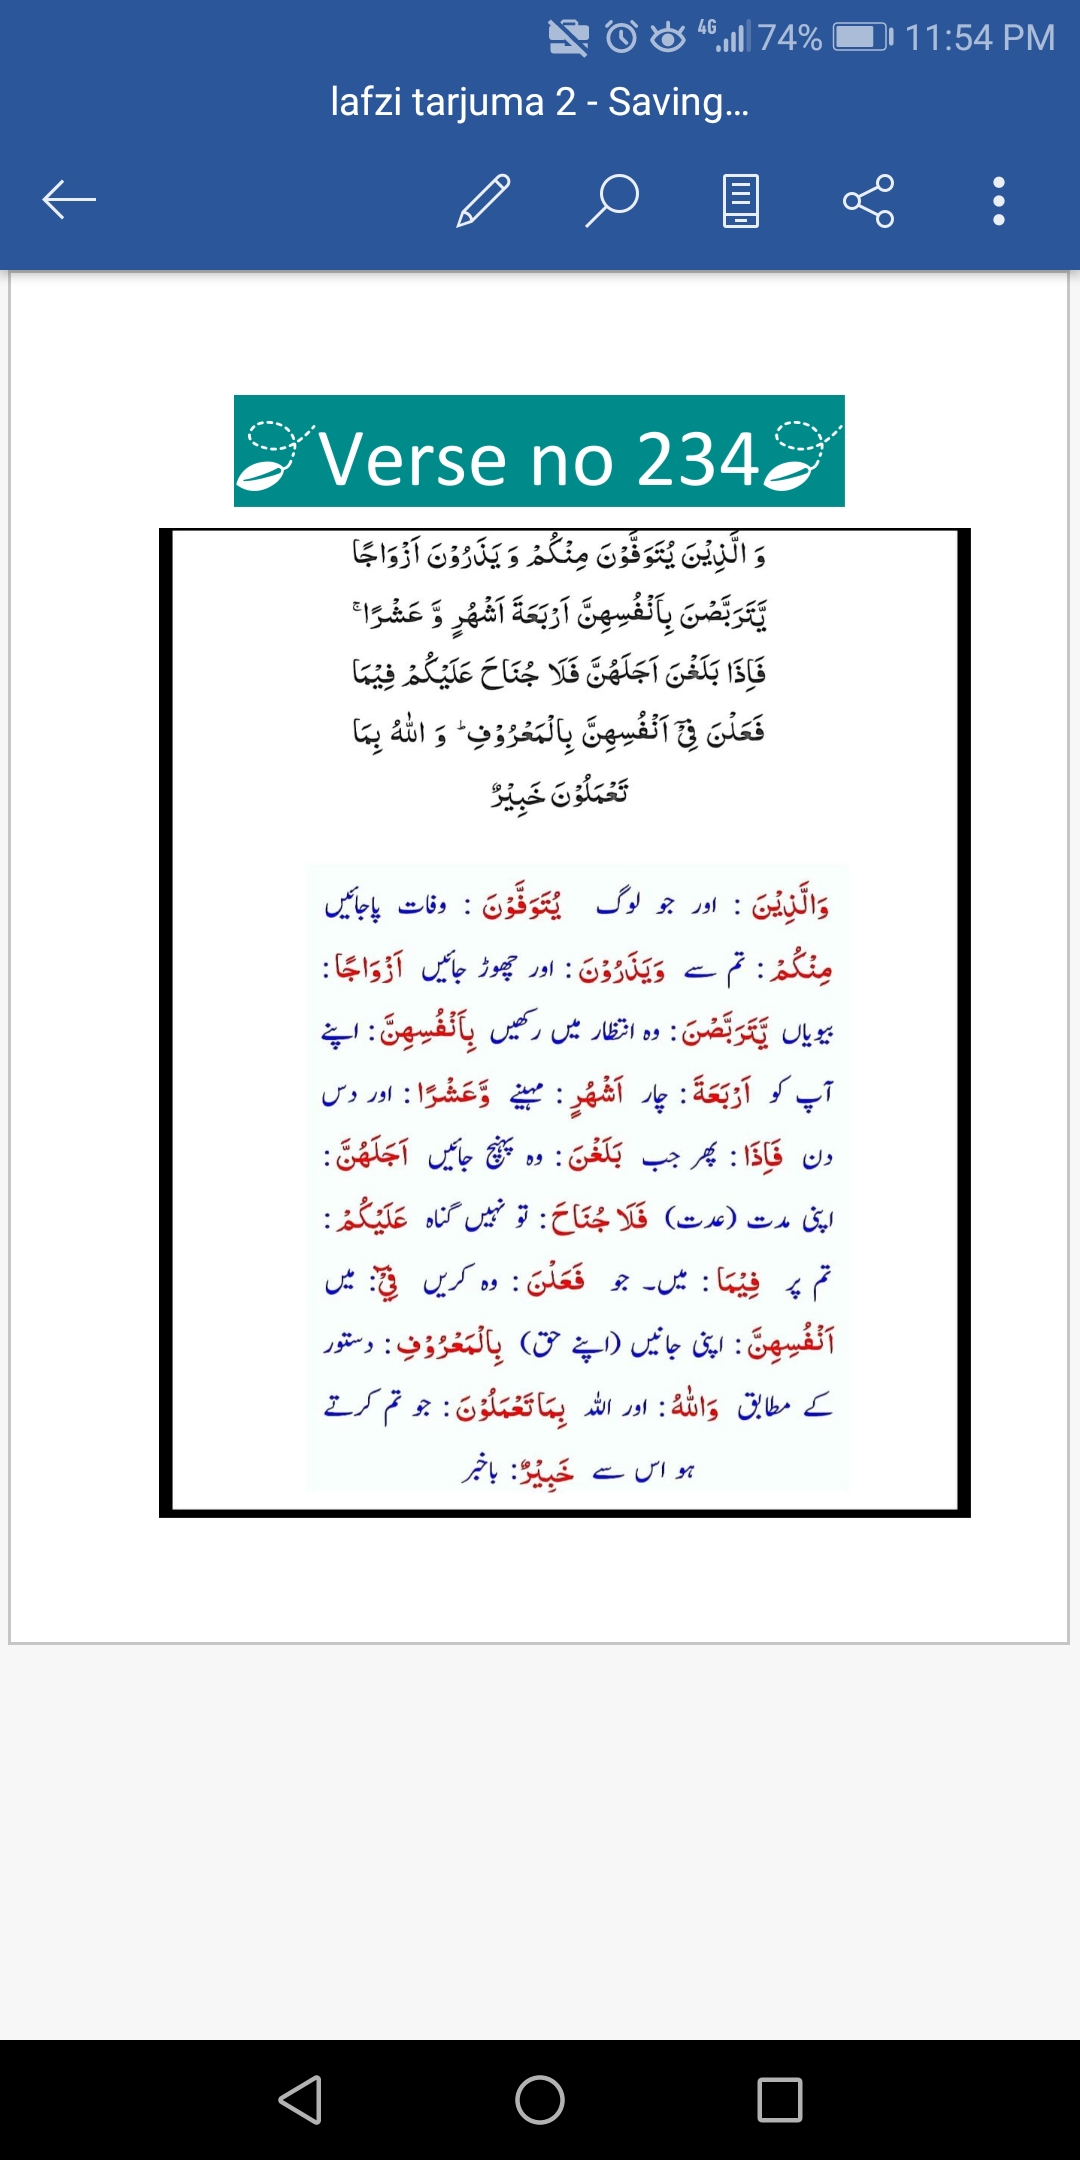 4G 74% 11:54 PM
lafzi tarjuma 2 - Saving...
Verse no 234
وَ الَّذِیْنَ یُتَوَفَّوْنَ مِنْكُمْ وَ یَذَرُوْنَ اَزْوَاجًا
یَّتَرَبَّصْنَ بِاَنْفُسِهِنَّ اَرْبَعَةَ اَشْهُرٍ وَّ عَشْرًاۚ
فَاِذَا بَلَغْنَ اَجَلَهُنَّ فَلَا جُنَاحَ عَلَیْكُمْ فِیْمَا
فَعَلْنَ فِیْۤ اَنْفُسِهِنَّ بِالْمَعْرُوْفِؕ وَ اللّٰهُ بِمَا
تَعْمَلُوْنَ خَبِیْرٌ
وَالَّذِیْنَ : اور جو لوگ یُتَوَفَّوْنَ : وفات پاجائیں
مِنْكُمْ : تم سے وَیَذَرُوْنَ : اور چھوڑ جائیں اَزْوَاجًا :
بیویاں یَّتَرَبَّصْنَ : وہ انتظار میں رکھیں بِاَنْفُسِهِنَّ : اپنے
آپ کو اَرْبَعَةَ : چار اَشْهُرٍ : مہینے وَّعَشْرًا : اور دس
دن فَاِذَا : پھر جب بَلَغْنَ : وہ پہنچ جائیں اَجَلَهُنَّ :
اپنی مدت (عدت) فَلَا جُنَاحَ : تو نہیں گناہ عَلَیْكُمْ :
تم پر فِیْمَا : میں۔ جو فَعَلْنَ : وہ کریں فِیْۤ : میں
اَنْفُسِهِنَّ : اپنی جانیں (اپنے حق) بِالْمَعْرُوْفِ : دستور
کے مطابق وَاللّٰهُ : اور اللہ بِمَا تَعْمَلُوْنَ : جو تم کرتے
ہو اس سے خَبِیْرٌ : باخبر